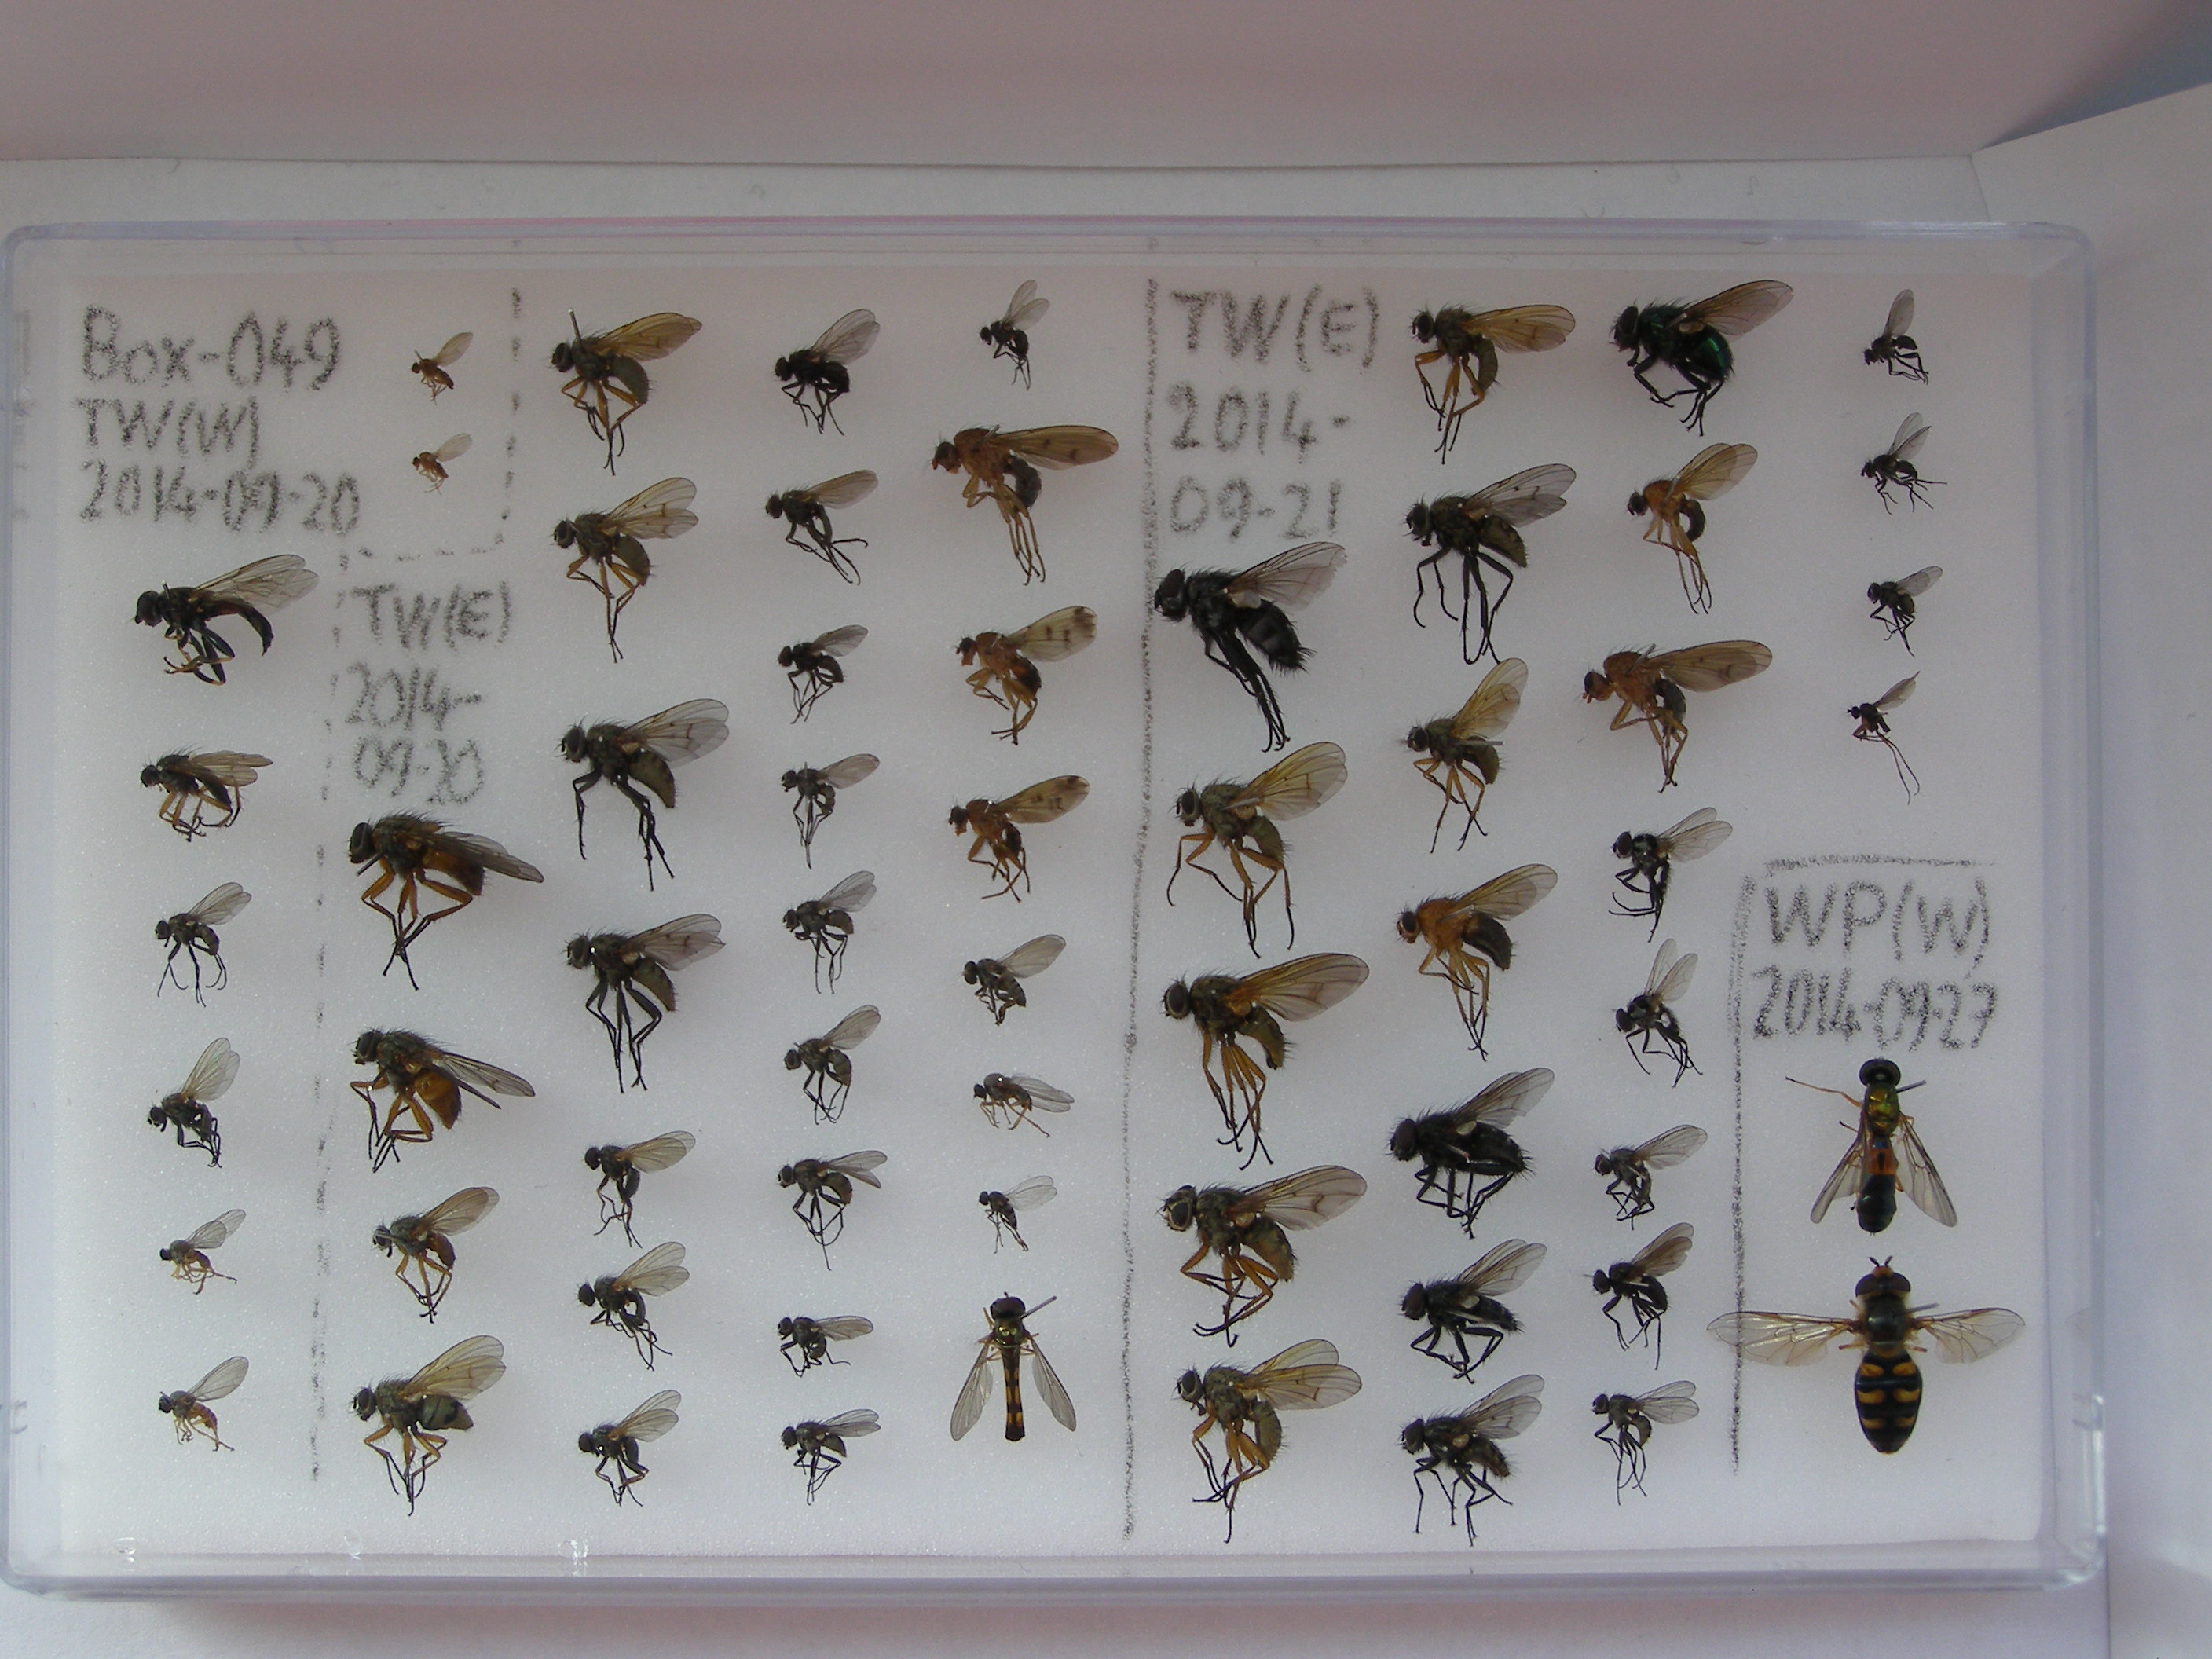 Box-049
TW(W)
2014-09-20
TW(E)
2014-
09-20
TW(E)
2014-
09-21
WP(W)
2014-09-27